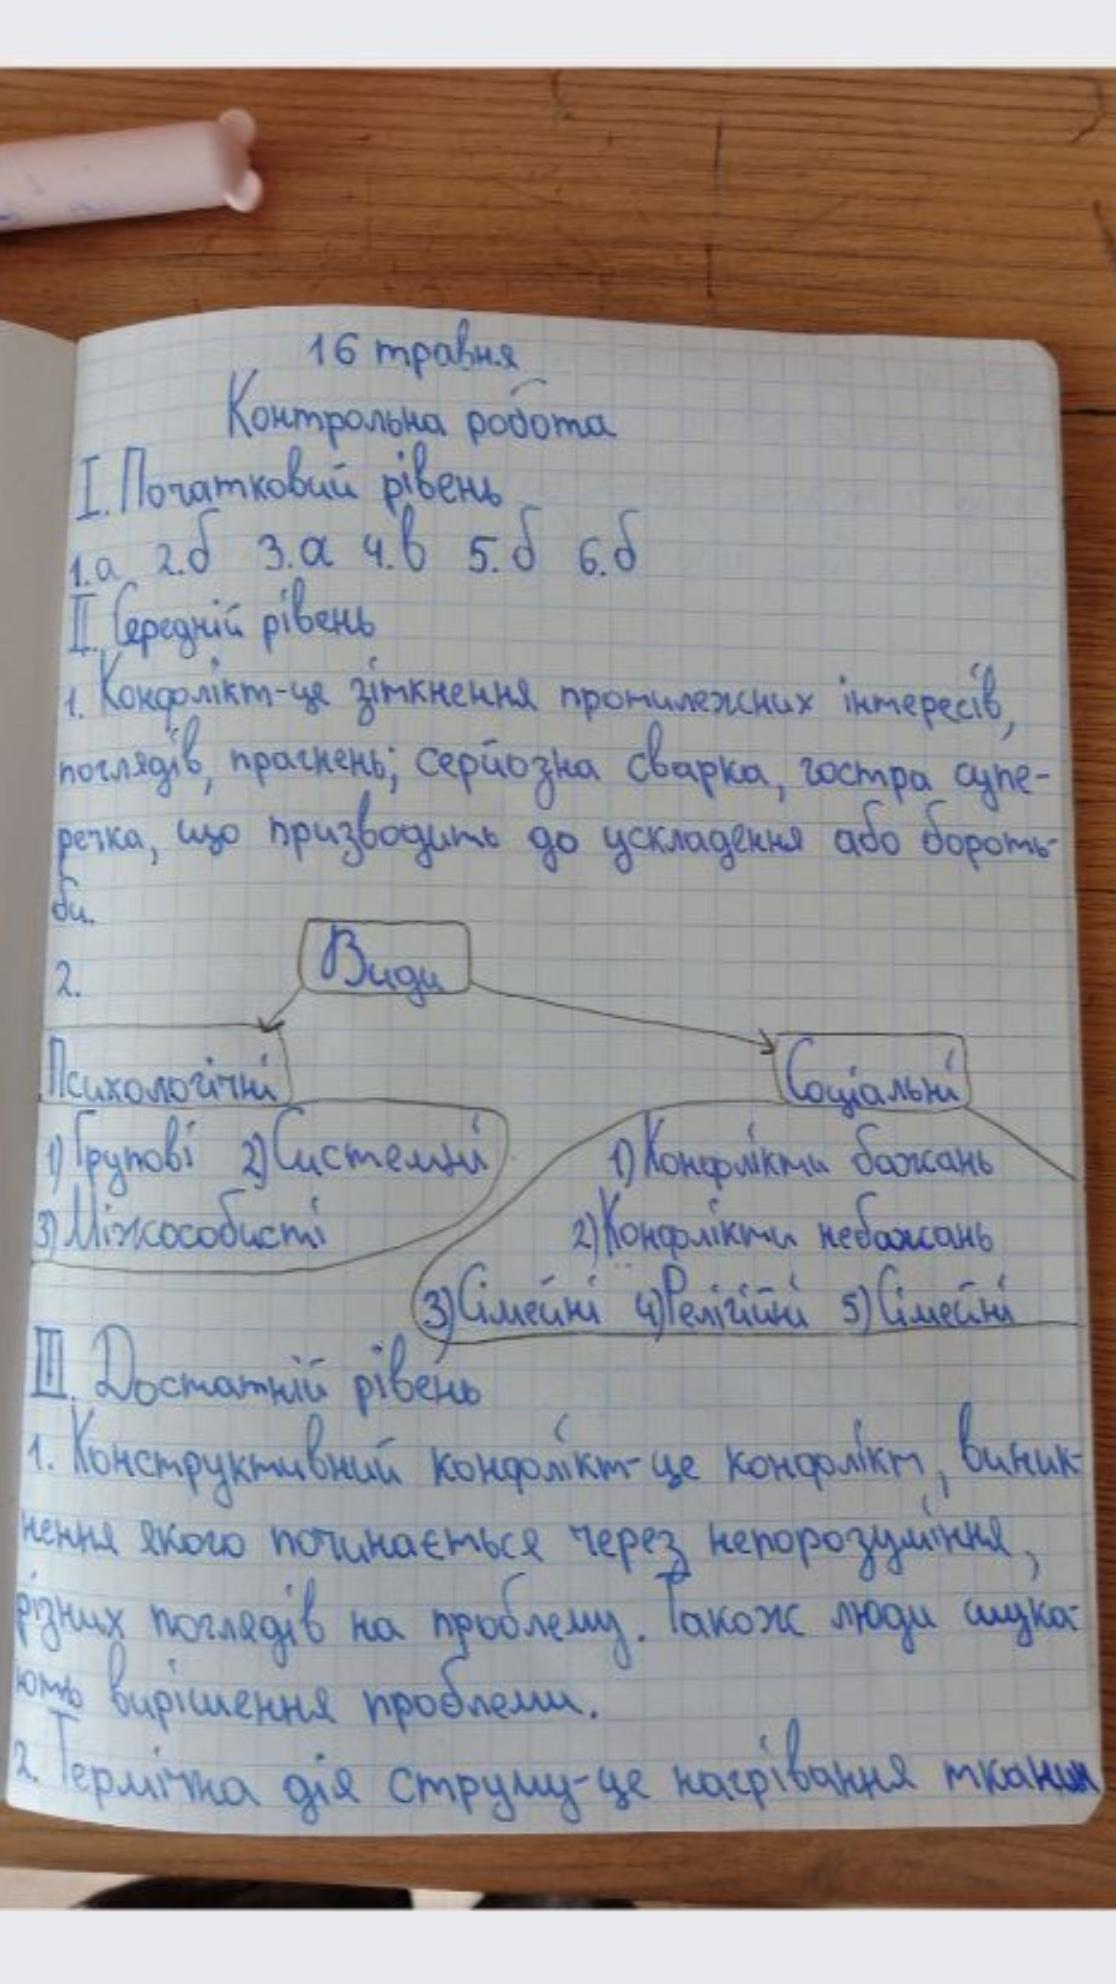 16 травня
Контрольна робота
I. Початковий рівень
1.а 2.б 3.а 4.в 5.б 6.б
II. Середній рівень
1. Конфлікт-це зіткнення протилежних інтересів,
поглядів, прагнень; серйозна сварка, гостра супе-
речка, що призводить до ускладення або бороть-
би.
2. Види
Психологічні Соціальні
1) Групові 2) Системні 1) Конфлікти бажань
3) Міжособисті 2) Конфлікти небажань
3) Сімейні 4) Релігійні 5) Сімейні
III. Достатній рівень
1. Конструктивний конфлікт-це конфлікт, виник-
нення якого починається через непорозуміння,
різних поглядів на проблему. Також люди шука-
ють вирішення проблеми.
2. Термічна дія струму-це нагрівання тканин